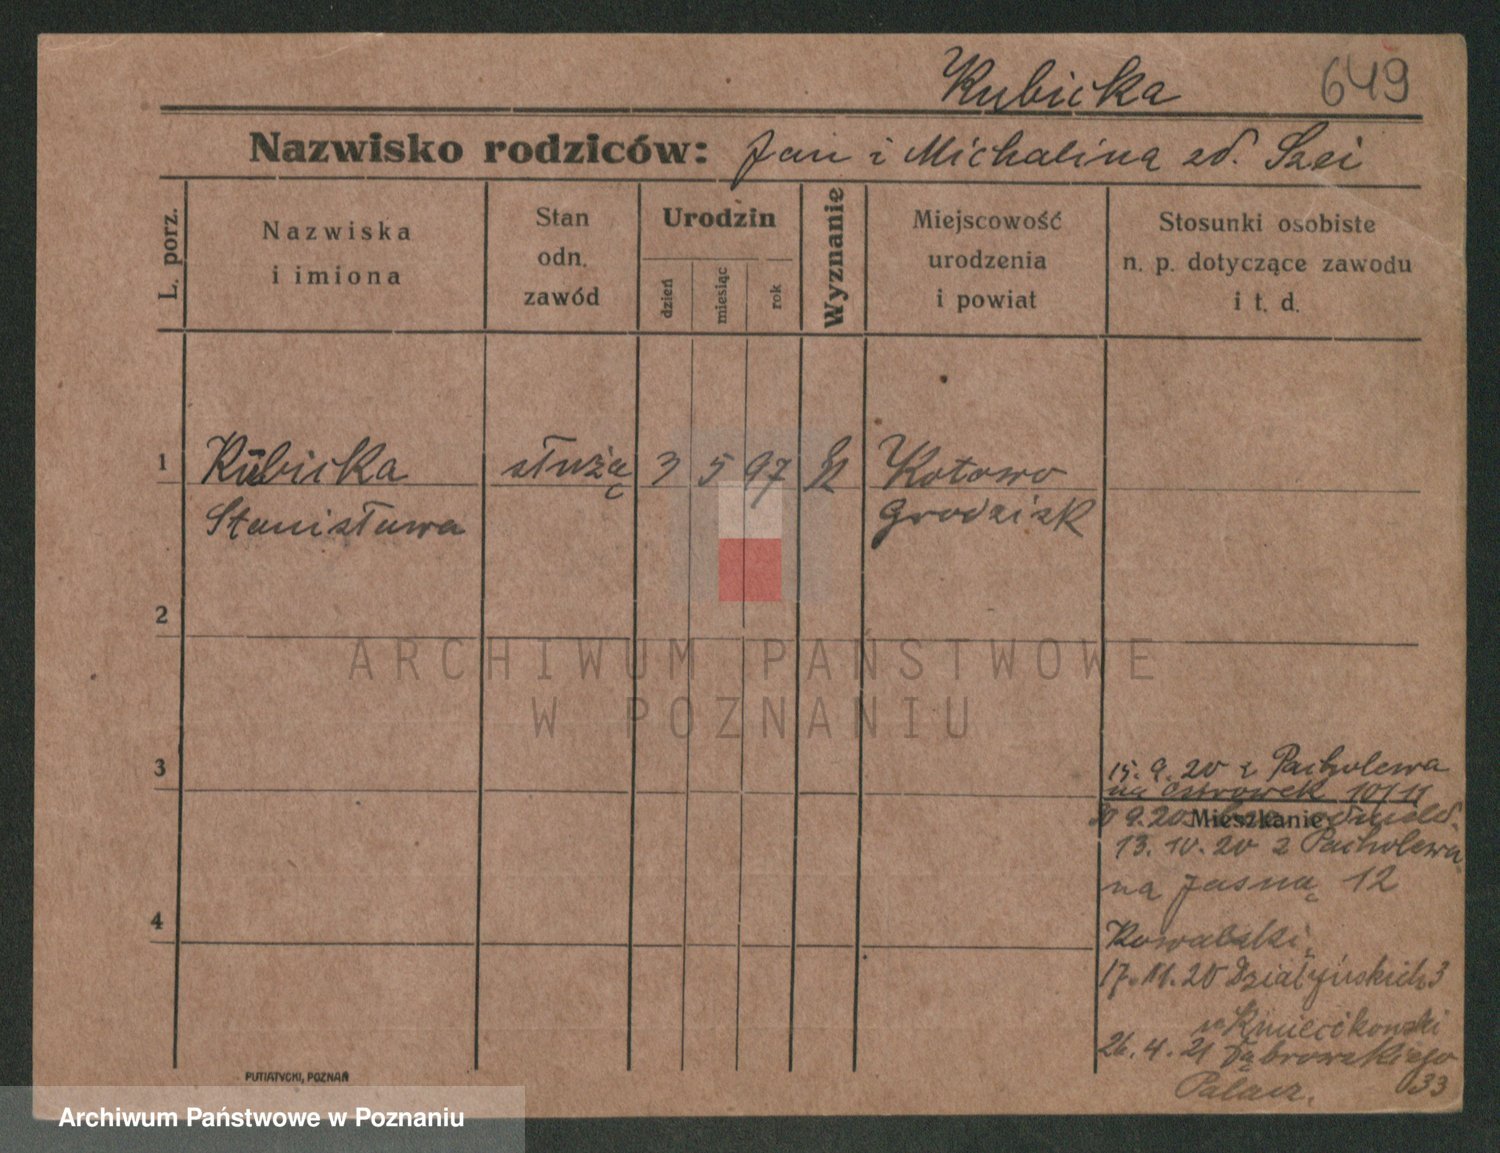 Kubicka 649
Nazwisko rodziców: Jan i Michalina zd. Szei
L. porz.
Nazwiska
i imiona
Stan
odn.
zawód
Urodzin
dzień
miesiąc
rok
Wyznanie
Miejscowość
urodzenia
i powiat
Stosunki osobiste
n. p. dotyczące zawodu
i t. d.
1 Kubicka służą 3 5 97 Kotowo
Stanisława Grodzisk
2
ARCHIWUM PAŃSTWOWE
W POZNANIU
3
15.9.20 z Pacholewa
na Ostrówek 10/11
30 9.20
Mieszkanie
13.10.20 z Pacholewa
na Jasną 12
4
Kowalski
17.11.20 Działyńskich 3
26.4.21 Dąbrowskiego
33
Palacz.
PUTIATYCKI, POZNAŃ
Archiwum Państwowe w Poznaniu